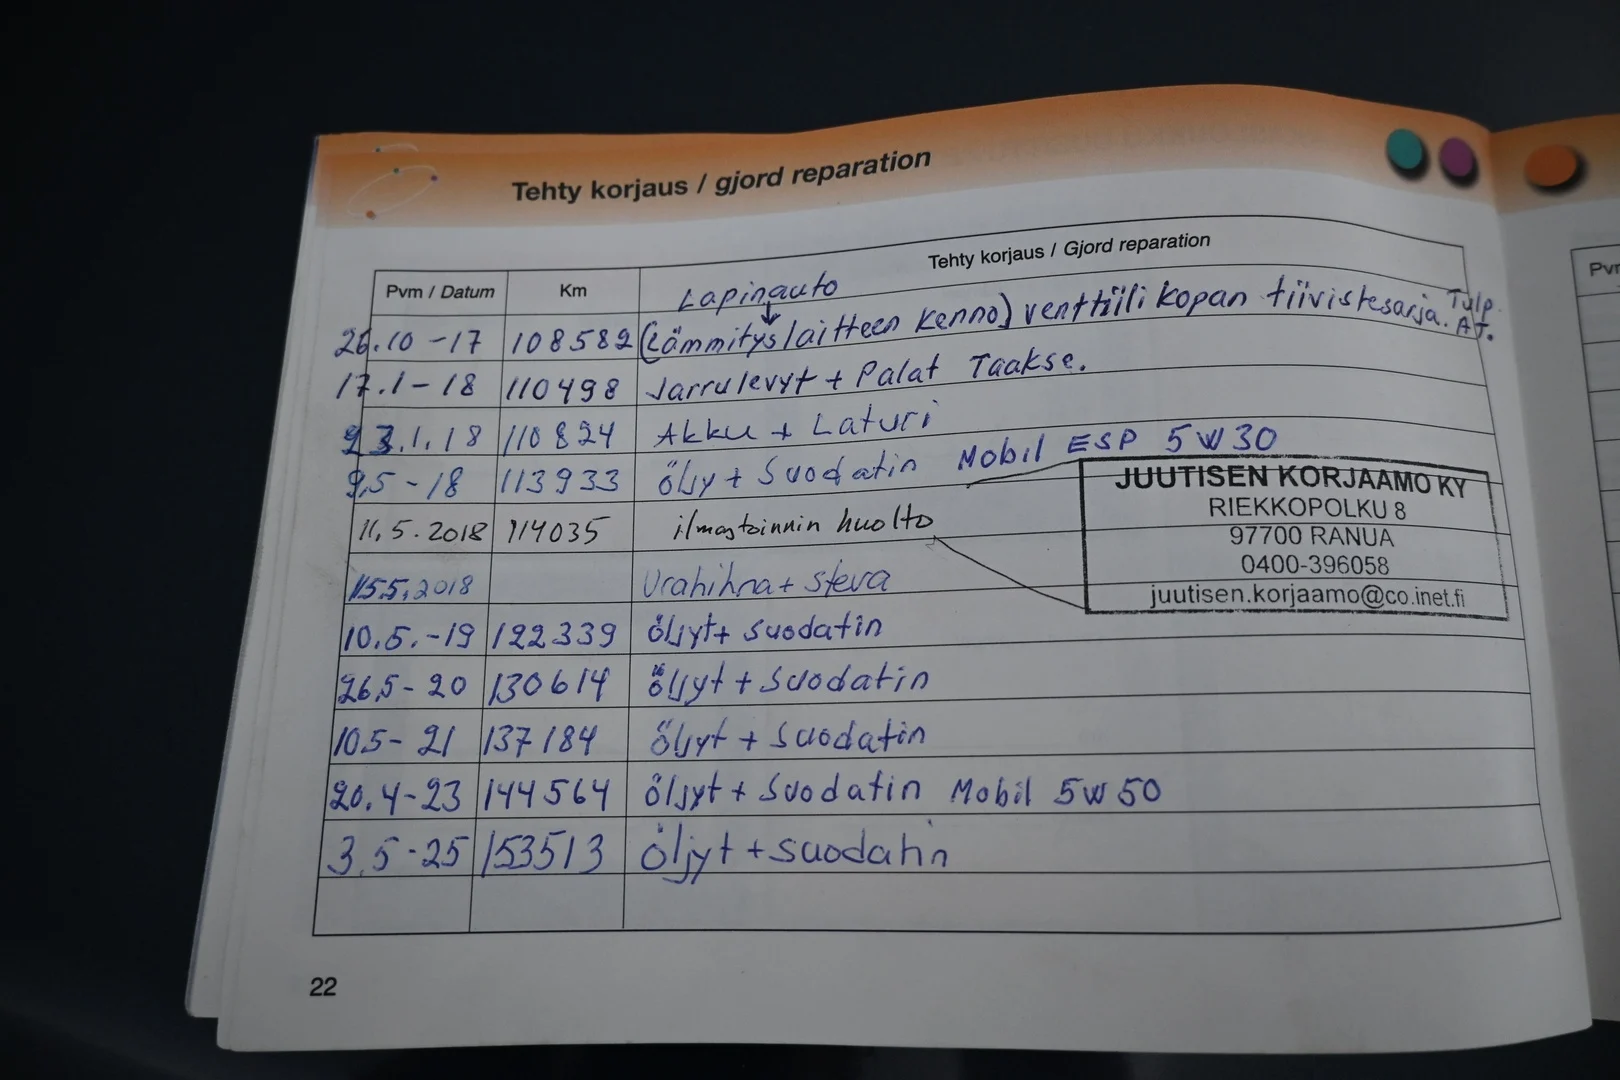 Tehty korjaus / gjord reparation
Pvm / Datum Km Tehty korjaus / Gjord reparation
Lapinauto
26.10-17 108582 (Lämmityslaitteen kenno) venttiili kopan tiivistesarja. Tulp. AJ.
17.1-18 110498 Jarrulevyt + Palat Taakse.
23.1.18 110824 Akku + Laturi
9,5-18 113933 öljy + Suodatin Mobil ESP 5W30
11.5.2018 114035 ilmastoinnin huolto
JUUTISEN KORJAAMO KY
RIEKKOPOLKU 8
97700 RANUA
0400-396058
juutisen.korjaamo@co.inet.fi
15.5.2018 Urahihna +
10.5.-19 122339 öljyt + Suodatin
26.5-20 130614 öljyt + Suodatin
10.5-21 137184 öljyt + Suodatin
20.4-23 144564 öljyt + Suodatin Mobil 5W50
3.5-25 153513 öljyt + suodatin
22
Pvm